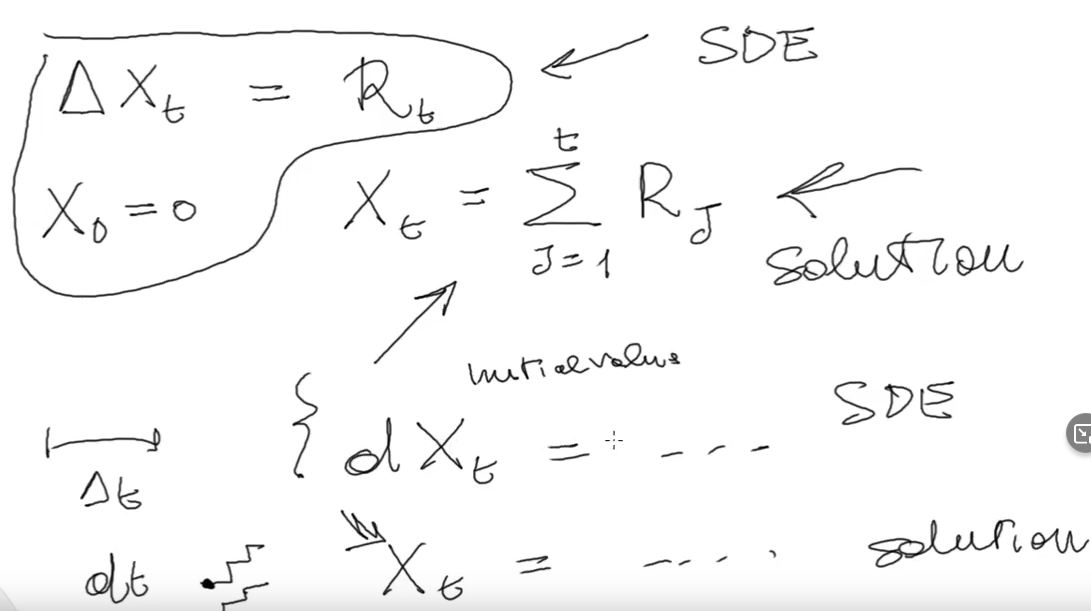 ΔX_t = R_t ← SDE
X_0 = 0 X_t = \sum_{J=1}^{t} R_J ← solution
initial value
{ dX_t = --- SDE
Δt
dt X_t = ---- solution